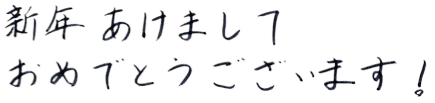 新年 あけまして
おめでとうございます!